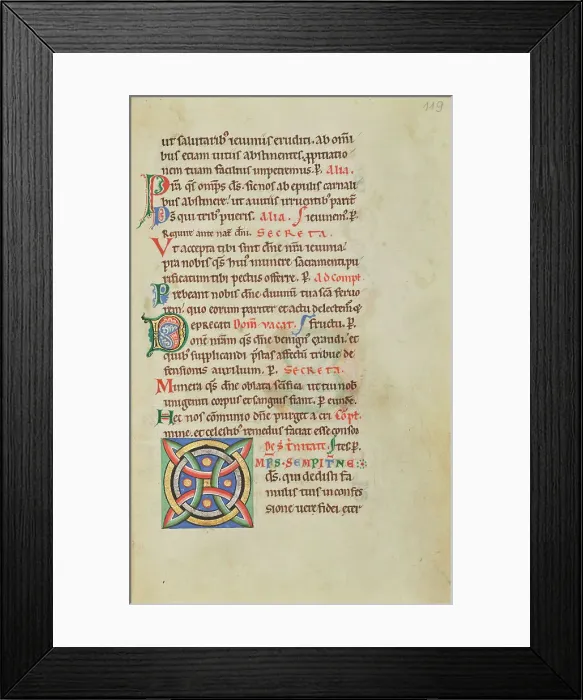 119
ut salutarib' ieiuniis eruditi. ab om̄i
bus etiam uitiis abstinentes, ꝓpitiatio
nem tuam facilius impetremus. ꝑ. Alia.
Pr̄a qs om̄ps ds. sic nos ab epulis carnali
bus abstinere. ut a uitiis irruentib' parit̄
Ds qui trib' pueris. Alia. ieiunen̄. ꝑ.
Require ante nat̄ dn̄i. Secreta.
Vt accepta tibi sint dn̄e nr̄a ieiunia/
pr̄a nobis qs hui' munere sacramenti pu
rificatum tibi pectus offerre. ꝑ. Ad Compt.
Prebeant nobis dn̄e diuinū tua sc̄a feruo
rem. quo eorum pariter et actu delectem̄
Deprecati Dom̄ vacat. fructu. ꝑ.
onē nr̄am qs dn̄e benign' exaudi. et
quib' supplicandi p̄stas affectū tribue de
fensionis auxilium. ꝑ. Secreta.
Munera qs dn̄e oblata sc̄ifica. ut tui nob
unigeniti corpus et sanguis fiant. ꝑ eundē.
Hec nos cōmunio dn̄e purget a cri Cōpt.
mine. et celestib' remediis faciat esse consor
De s. trinitate. tes. ꝑ.
MPS. SEMPITNE
ds. qui dedisti fa
mulis tuis in confes
sione uere fidei eter